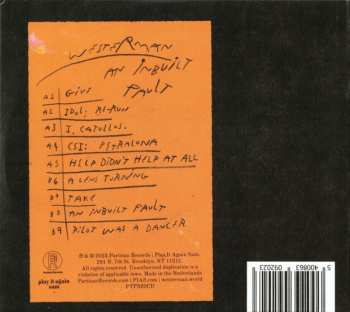 WESTERMAN
AN INBUILT
FAULT
A1 GIVE
A2 IDOL; RE-RUN
A3 I, CATULLUS.
A4 CSI: PETRALONA
A5 HELP DIDN'T HELP AT ALL
B6 A LENS TURNING
B7 TAKE
B8 AN INBUILT FAULT
B9 PILOT WAS A DANCER
play it again
sam
℗ & © 2023 Partisan Records | Play It Again Sam.
281 N. 7th St. Brooklyn, NY 11211.
All rights reserved. Unauthorized duplication is a
violation of applicable laws. Made in the Netherlands
PartisanRecords.com | PIAS.com | westerman.world
5 400863 092023